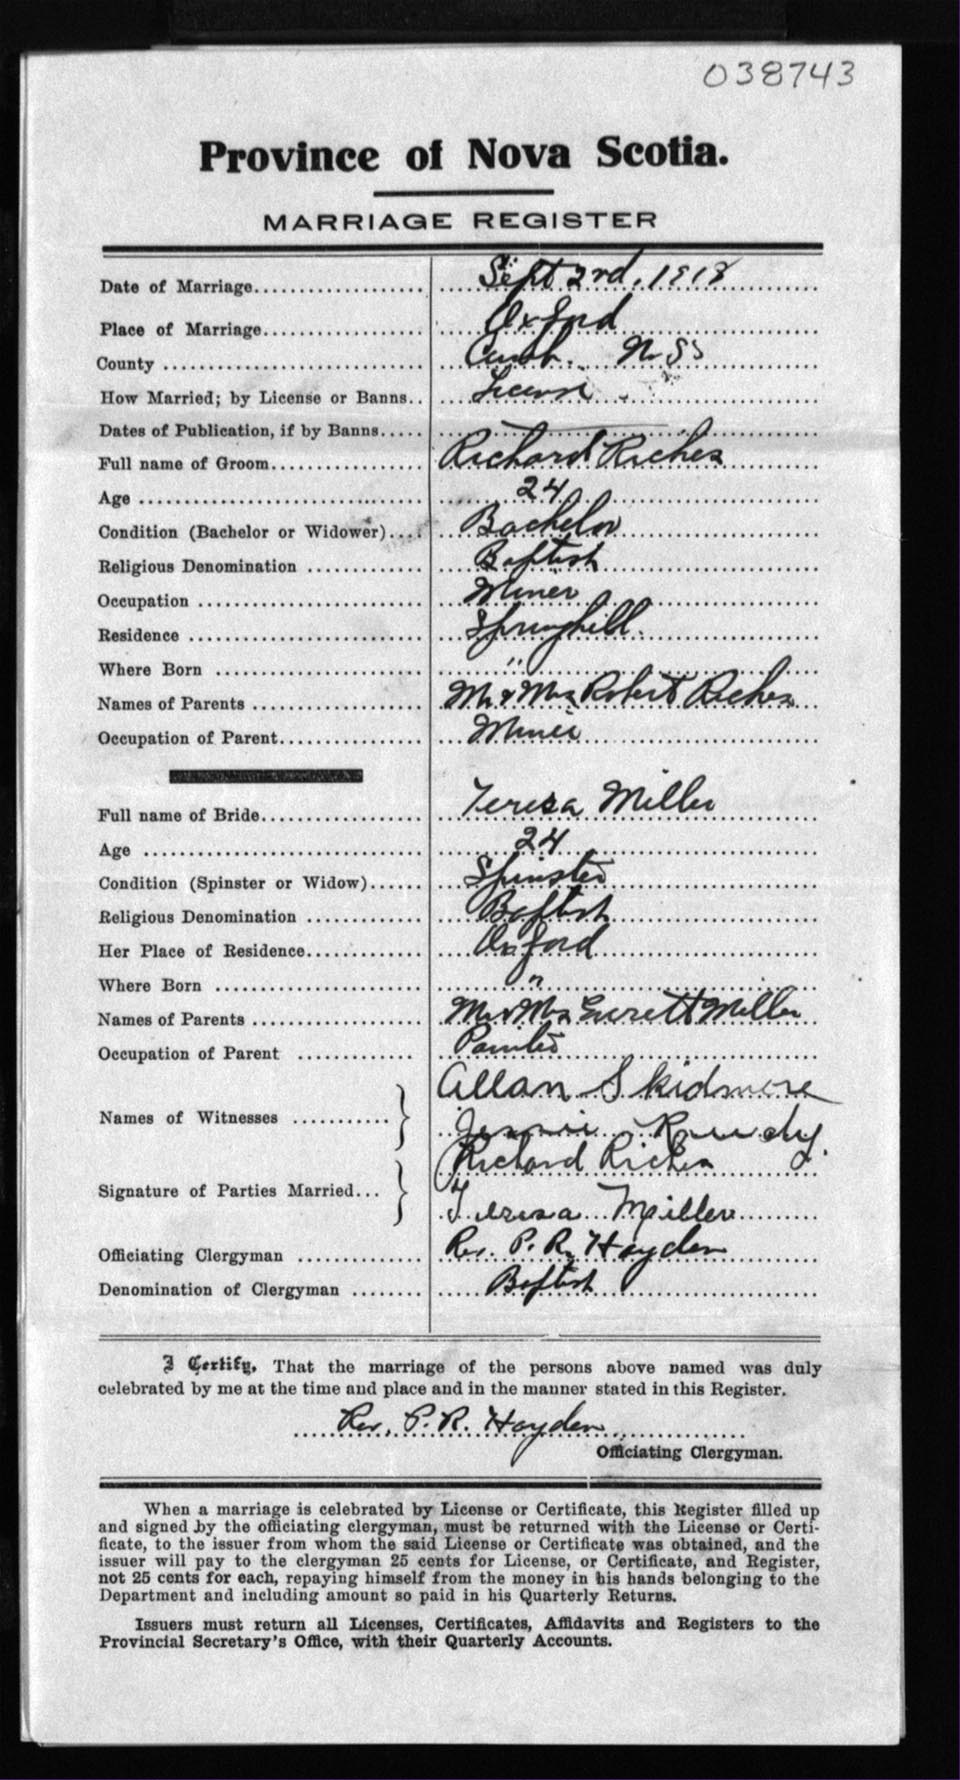 038743
Province of Nova Scotia.
MARRIAGE REGISTER
Date of Marriage.................... Sept 2nd, 1918
Place of Marriage................... Oxford
County ............................ Cumb. N. S.
How Married; by License or Banns.. License
Dates of Publication, if by Banns.....
Full name of Groom.................. Richard Riches
Age ............................... 24
Condition (Bachelor or Widower).... Bachelor
Religious Denomination ............ Baptist
Occupation ........................ Miner
Residence ......................... Springhill.
Where Born ...................... "
Names of Parents .................. Mr & Mrs Robert Riches
Occupation of Parent............... Miner
Full name of Bride.................. Teresa Miller
Age ............................... 24
Condition (Spinster or Widow)...... Spinster
Religious Denomination ............ Baptist
Her Place of Residence............. Oxford
Where Born ...................... "
Names of Parents .................. Mr & Mrs Miller
Occupation of Parent ............. Painter
Names of Witnesses ........... } Allan Skidmore
Jennie
Signature of Parties Married... } Richard Riches
Teresa Miller
Officiating Clergyman ............. Rev. P. R. Hayden
Denomination of Clergyman ........ Baptist
I Certify, That the marriage of the persons above named was duly
celebrated by me at the time and place and in the manner stated in this Register.
Rev. P. R. Hayden
Officiating Clergyman.
When a marriage is celebrated by License or Certificate, this Register filled up
and signed by the officiating clergyman, must be returned with the License or Certi-
ficate, to the issuer from whom the said License or Certificate was obtained, and the
issuer will pay to the clergyman 25 cents for License, or Certificate, and Register,
not 25 cents for each, repaying himself from the money in his hands belonging to the
Department and including amount so paid in his Quarterly Returns.
Issuers must return all Licenses, Certificates, Affidavits and Registers to the
Provincial Secretary's Office, with their Quarterly Accounts.